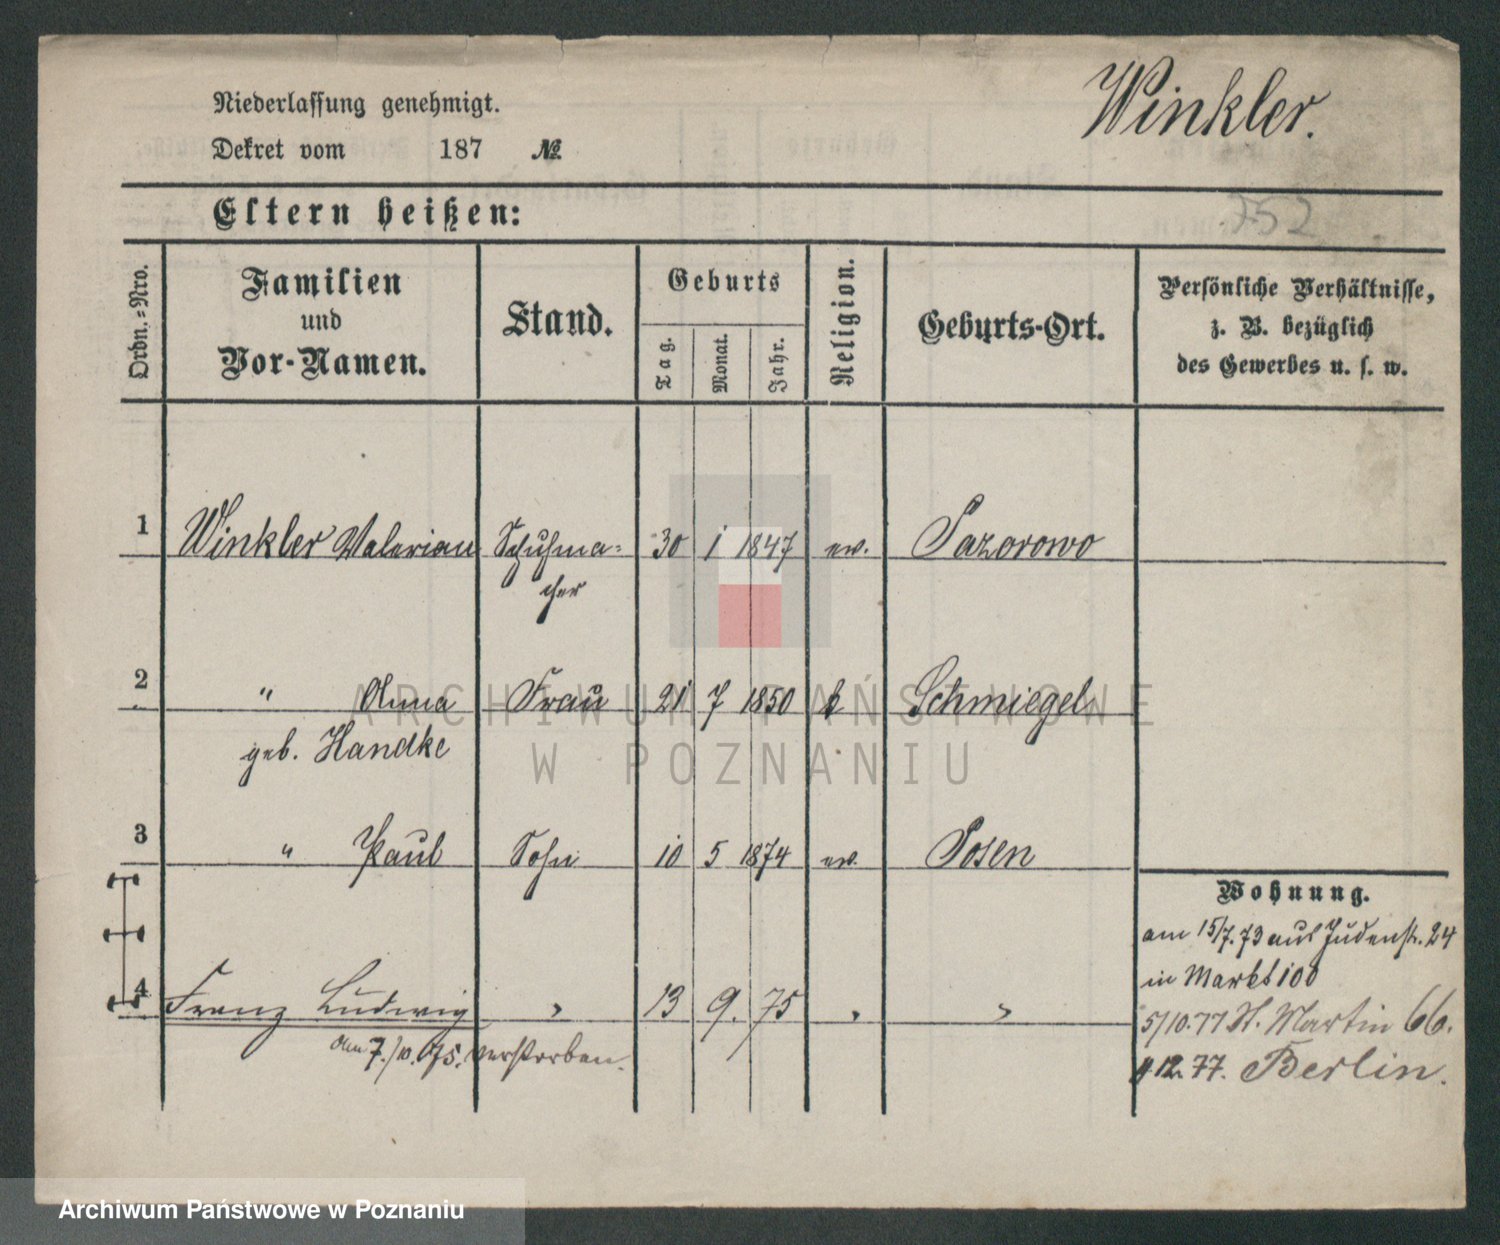 Winkler.
Niederlassung genehmigt.
Dekret vom 187 №
752
Eltern heißen:
Ordn.-Nro.
Familien und Vor-Namen.
Stand.
Geburts
Tag.
Monat.
Jahr.
Religion.
Geburts-Ort.
Persönliche Verhältnisse,
z. B. bezüglich
des Gewerbes u. s. w.
1 Winkler Valerian Schuhma= 30 1 1847 ev. Pazorowo
cher
2 " Anna Frau 21 7 1850 k Schmiegel
geb. Handke
3 " Paul Sohn 10 5 1874 ev. Posen
4 Franz Ludwig " 13 9. 75 " "
am 7./10. 75. verstorben.
Wohnung.
am 15/7.73 aus Judenstr. 24
in Markt 100
5/10.77 St. Martin 66.
4 12. 77. Berlin.
ARCHIWUM PAŃSTWOWE
W POZNANIU
Archiwum Państwowe w Poznaniu